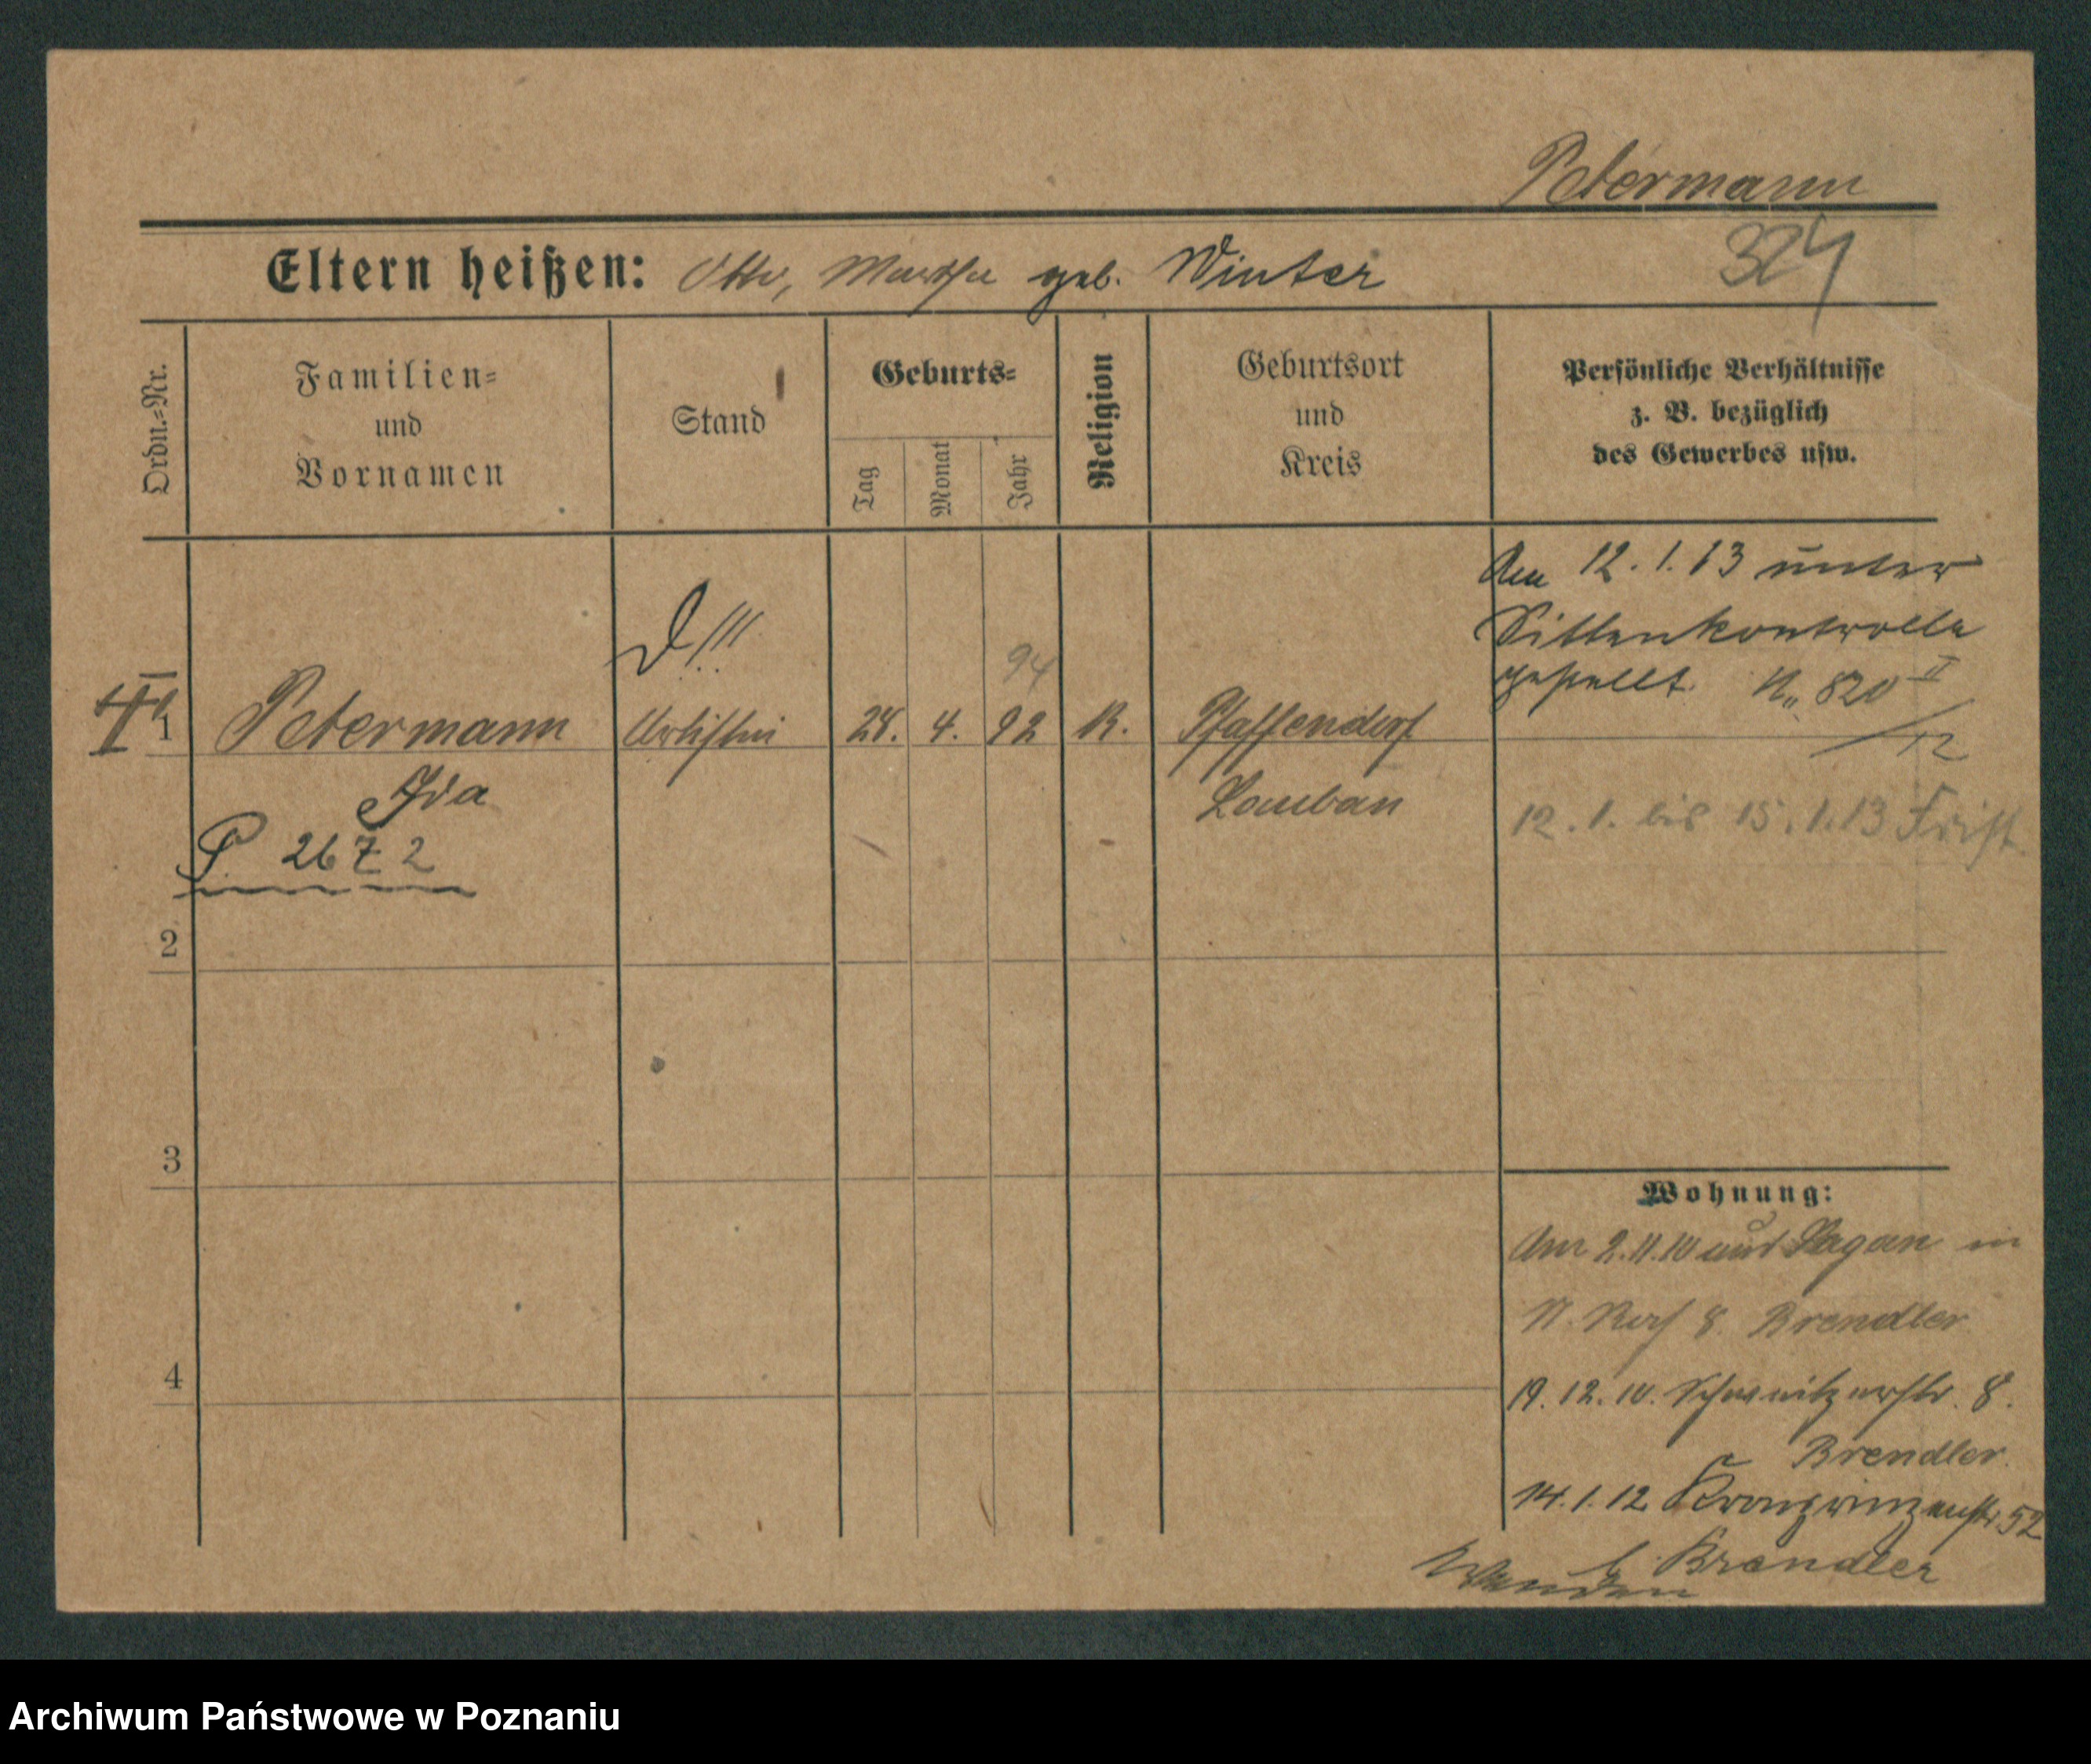 Petermann
324
Eltern heißen: Otto, Martha geb. Winter
Ordn.=Nr.
Familien=
und
Vornamen
Stand
Geburts=
Tag
Monat
Jahr
Religion
Geburtsort
und
Kreis
Persönliche Verhältnisse
z. B. bezüglich
des Gewerbes usw.
Am 12.1.13 unter
Sittenkontrolle
gestellt. N. 820 II
/12
94
1 Petermann Artistin 28. 4. 92 K. Pfaffendorf
Ida
Lauban
P 2672
12.1. bis 15.1.13 Frist
2
3
4
Wohnung:
Am 2.11.10 aus Sagan in
8. Brendler
19.12.10. 8.
Brendler.
14.1.12 Kronprinzenstr 52
b. Brendler
Wenden
Archiwum Państwowe w Poznaniu